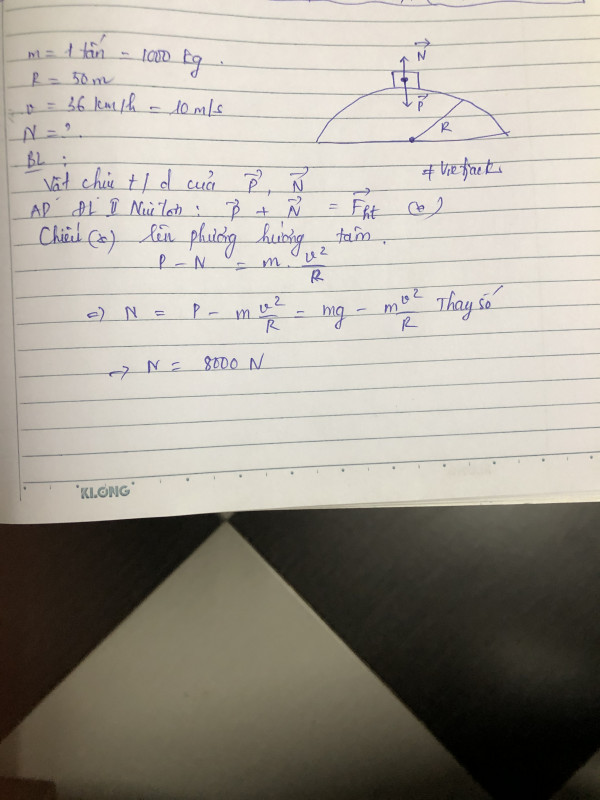 m = 1 tấn = 1000 kg.
R = 50 m
v = 36 km/h = 10 m/s
N = ?.
N
P
R
BL:
# Vietjack
Vật chịu t/d của P, N
AD ĐL II Niu tơn: P + N = Fht (*)
Chiếu (*) lên phương hướng tâm.
P - N = m. v²/R
=> N = P - m v²/R = mg - m v²/R Thay số
=> N = 8000 N
KLONG